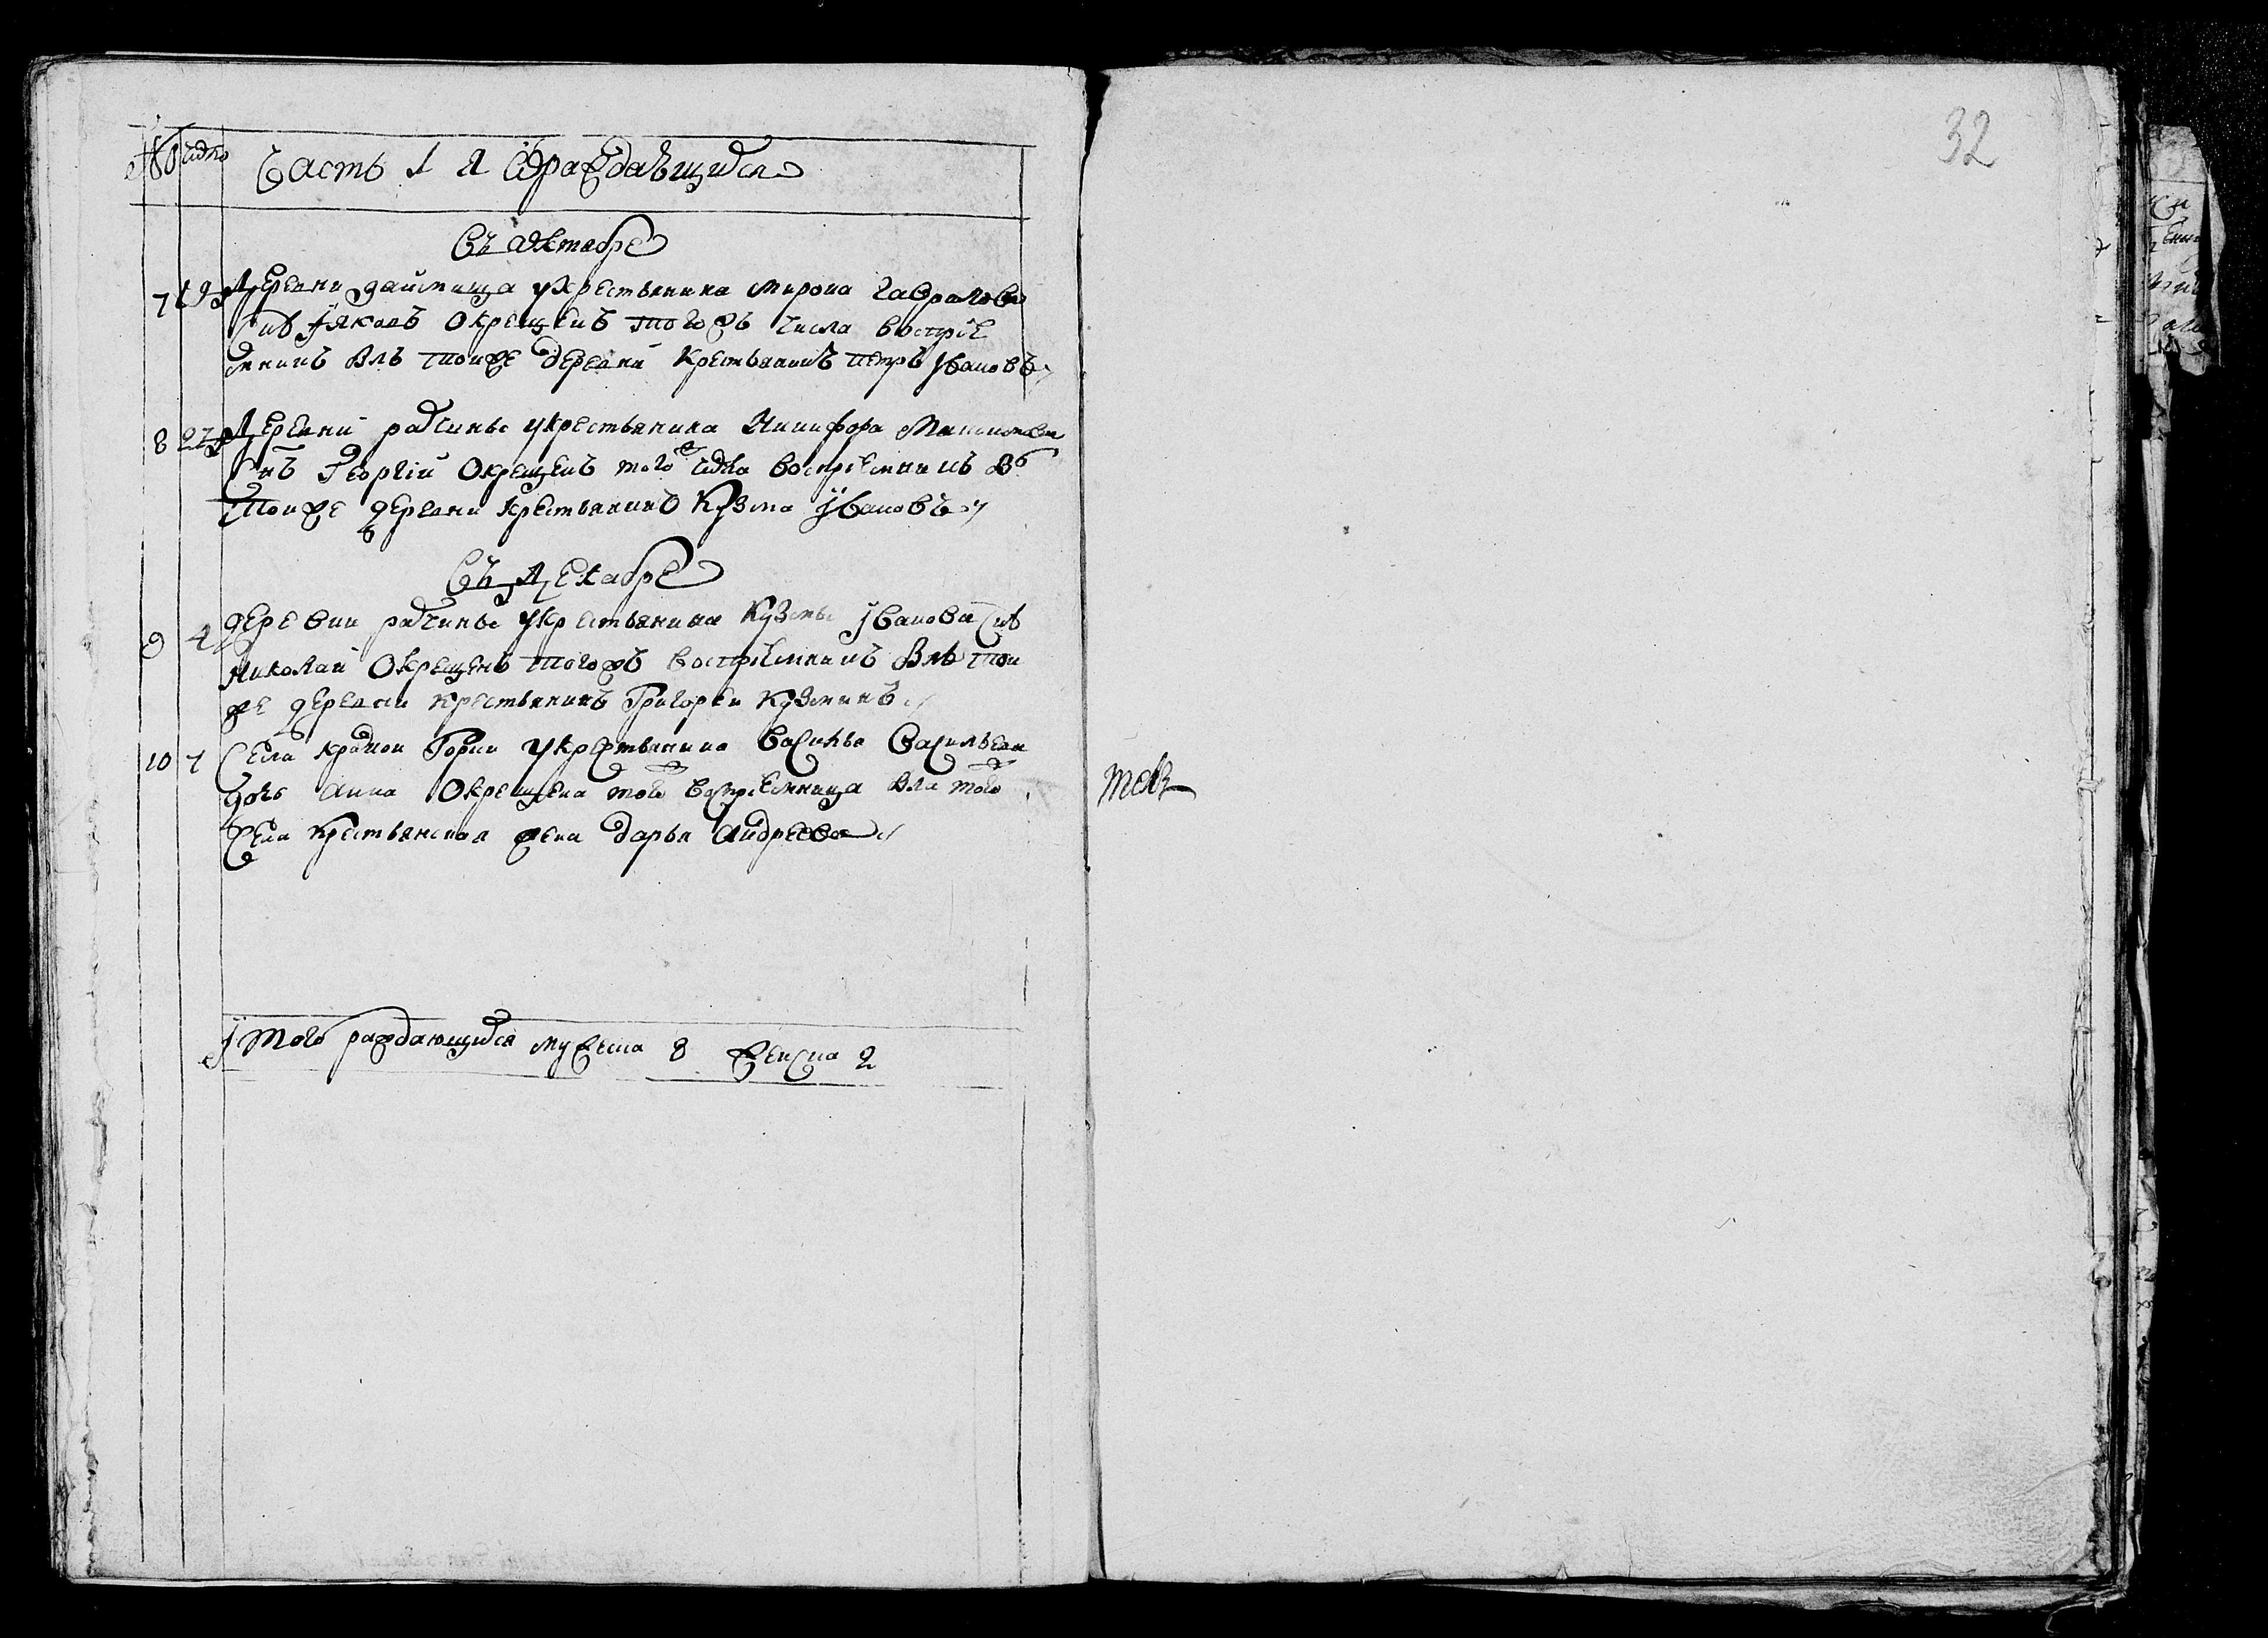 32
№ Число Часть 1 я Ораждающихся
Въ Октябре
7 19 Деревни займища укрестьянина мирона гаврилова
Снъ Іяковъ Окрещенъ тогожъ числа воспрїе
мникъ Былъ тоиже деревни крестьянинъ петръ Iвановъ
8 27 Деревни радчины укрестьянина Никифора
Снъ Георгїи Окрещенъ того ж числа воспрїемникъ Бы
Тоиже деревни крестьянинъ Кузма Iвановъ
Въ Декабре
9 4 деревни радчины укрестьянина Кузмы Iванова Снъ
Николаи Окрещенъ тогожъ воспрїемникъ Былъ тои
же деревни крестьянинъ Григореи Кузминъ
10 7 Села Краснои Горки укрестьянина василья Васильева
дочь анна Окрещена того ж воспрїемница Была того ж
Села крестьянская жена дарья Андреева
Iтого раждающихся мужеска 8 женска 2